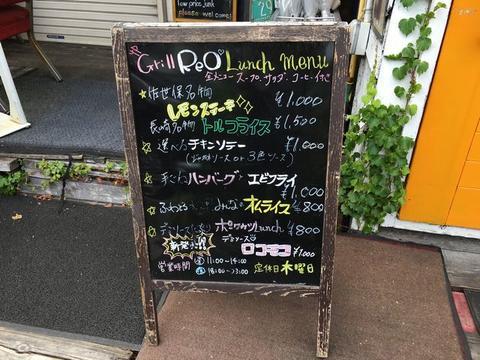 low price, junk
please welcome!
29
Grill ReO Lunch menu
全メニュー スープ、サラダ、コーヒー付き
佐世保名物
レモンステーキ ¥1,000
長崎名物 トルコライス ¥1,500
選べる チキンソテー ¥1,000
ソース or 3色ソース)
ハンバーグ エビフライ
¥1,000
ふわふわ オムライス ¥800
デミソース ポークカツ Lunch ¥800
新発売!! デミソース
ロコモコ ¥1,000
営業時間 11:00~14:00
18:00~23:00 定休日 木曜日